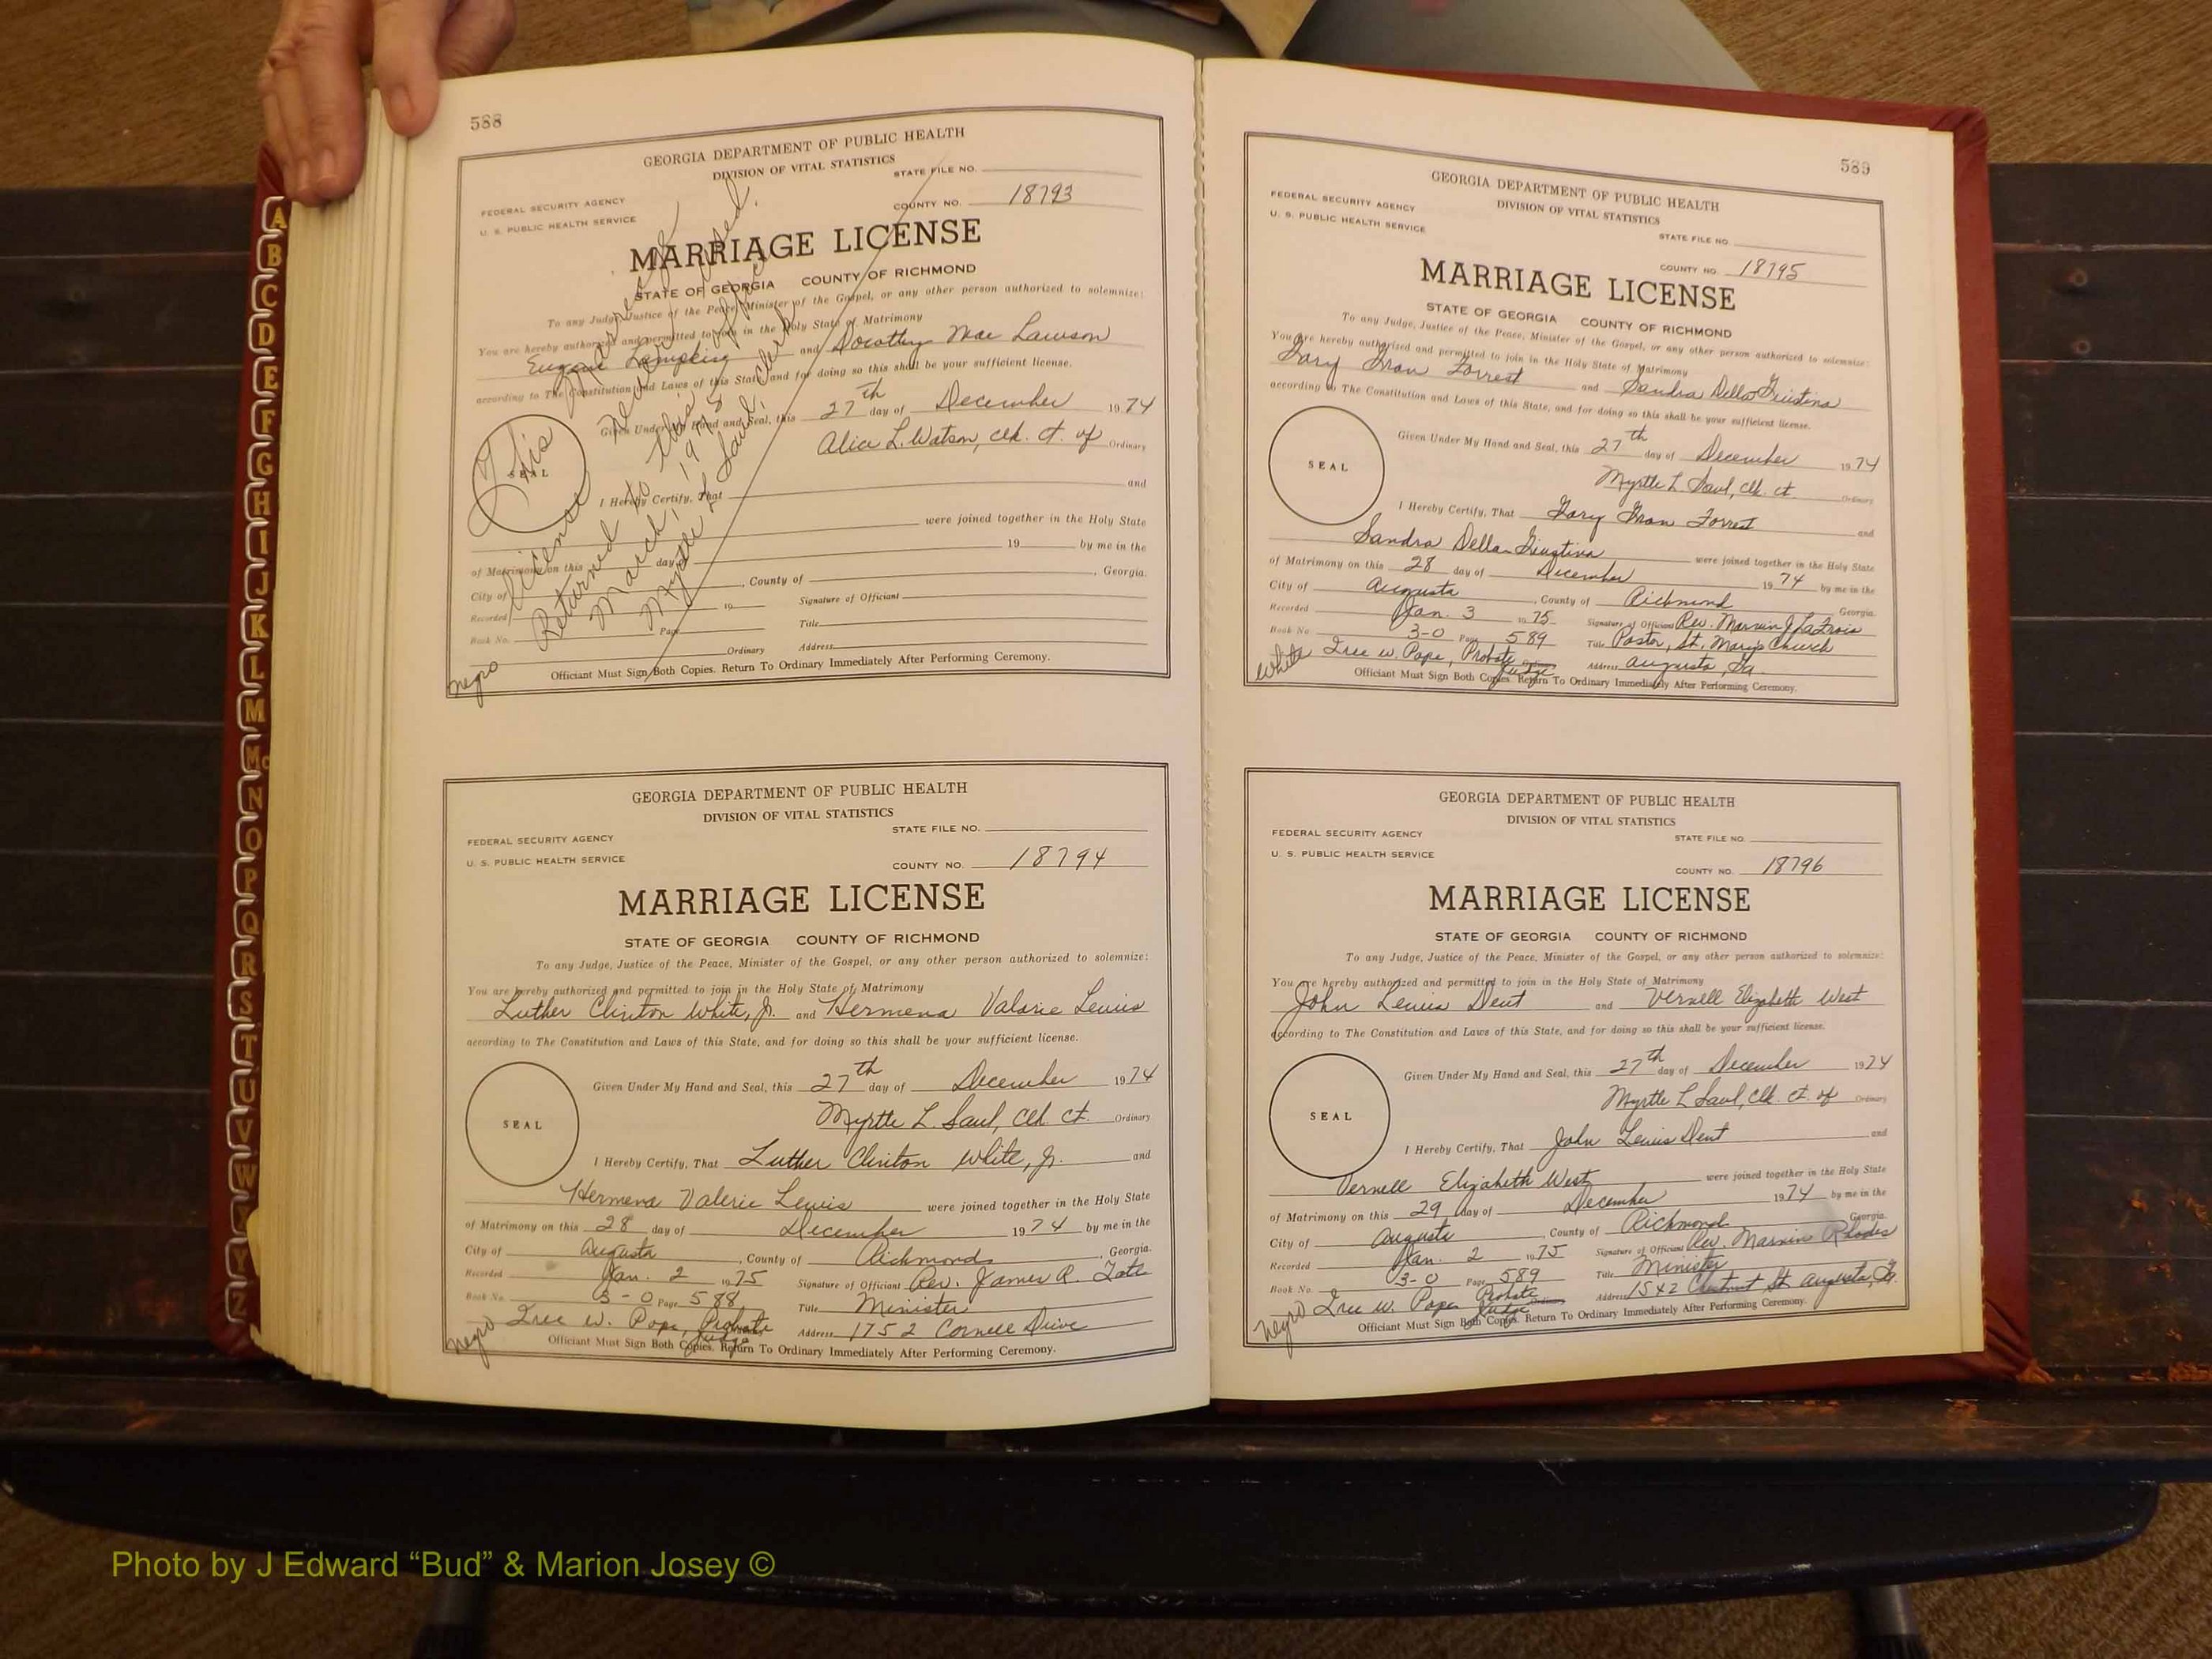 588
GEORGIA DEPARTMENT OF PUBLIC HEALTH
DIVISION OF VITAL STATISTICS
STATE FILE NO.
FEDERAL SECURITY AGENCY
U. S. PUBLIC HEALTH SERVICE
COUNTY NO. 18793
MARRIAGE LICENSE
STATE OF GEORGIA COUNTY OF RICHMOND
To any Judge, Justice of the Peace, Minister of the Gospel, or any other person authorized to solemnize:
You are hereby authorized and permitted to join in the Holy State of Matrimony
Eugene and Dorothy Mae Lawson
according to The Constitution and Laws of this State, and for doing so this shall be your sufficient license.
Given Under My Hand and Seal, this 27th day of December 1974
SEAL
Alice L. Watson, clk. ct. of Ordinary
I Hereby Certify, That and
were joined together in the Holy State
of Matrimony on this day of 19 by me in the
City of , County of , Georgia.
Recorded 19 Signature of Officiant
Book No. Page Title
Ordinary Address
Officiant Must Sign Both Copies. Return To Ordinary Immediately After Performing Ceremony.
negro
This Marriage
license never used.
Returned to this office
March, 19
Myrtle L. Saul, Clerk
GEORGIA DEPARTMENT OF PUBLIC HEALTH
DIVISION OF VITAL STATISTICS
STATE FILE NO.
FEDERAL SECURITY AGENCY
U. S. PUBLIC HEALTH SERVICE
COUNTY NO. 18794
MARRIAGE LICENSE
STATE OF GEORGIA COUNTY OF RICHMOND
To any Judge, Justice of the Peace, Minister of the Gospel, or any other person authorized to solemnize:
You are hereby authorized and permitted to join in the Holy State of Matrimony
Luther Clinton White, Jr. and Hermena Valarie Lewis
according to The Constitution and Laws of this State, and for doing so this shall be your sufficient license.
Given Under My Hand and Seal, this 27th day of December 1974
SEAL
Myrtle L. Saul, Clk. Ct. Ordinary
I Hereby Certify, That Luther Clinton White, Jr. and
Hermena Valerie Lewis were joined together in the Holy State
of Matrimony on this 28 day of December 1974 by me in the
City of Augusta, County of Richmond, Georgia.
Recorded Jan. 2 1975 Signature of Officiant Rev. James R. Tate
Book No. 3-O Page 588 Title Minister
Iree W. Pope, Probate Judge Address 1752 Cornell Drive
Officiant Must Sign Both Copies. Return To Ordinary Immediately After Performing Ceremony.
negro
589
GEORGIA DEPARTMENT OF PUBLIC HEALTH
DIVISION OF VITAL STATISTICS
FEDERAL SECURITY AGENCY
U. S. PUBLIC HEALTH SERVICE
STATE FILE NO.
COUNTY NO. 18795
MARRIAGE LICENSE
STATE OF GEORGIA COUNTY OF RICHMOND
To any Judge, Justice of the Peace, Minister of the Gospel, or any other person authorized to solemnize:
You are hereby authorized and permitted to join in the Holy State of Matrimony
Gary Fran Forrest and Sandra Della Giustina
according to The Constitution and Laws of this State, and for doing so this shall be your sufficient license.
Given Under My Hand and Seal, this 27th day of December 1974
SEAL
Myrtle L. Saul, Clk. ct. Ordinary
I Hereby Certify, That Gary Fran Forrest and
Sandra Della Giustina were joined together in the Holy State
of Matrimony on this 28 day of December 1974 by me in the
City of Augusta, County of Richmond Georgia.
Recorded Jan. 3 1975 Signature of Officiant Rev. Marvin J. LaFrois
Book No. 3-O Page 589 Title Pastor, St. Mary's Church
Iree W. Pope, Probate Judge Ordinary Address Augusta, Ga.
Officiant Must Sign Both Copies. Return To Ordinary Immediately After Performing Ceremony.
White
GEORGIA DEPARTMENT OF PUBLIC HEALTH
DIVISION OF VITAL STATISTICS
FEDERAL SECURITY AGENCY
STATE FILE NO.
U. S. PUBLIC HEALTH SERVICE
COUNTY NO. 18796
MARRIAGE LICENSE
STATE OF GEORGIA COUNTY OF RICHMOND
To any Judge, Justice of the Peace, Minister of the Gospel, or any other person authorized to solemnize:
You are hereby authorized and permitted to join in the Holy State of Matrimony
John Lewis Dent and Vernell Elizabeth West
according to The Constitution and Laws of this State, and for doing so this shall be your sufficient license.
Given Under My Hand and Seal, this 27th day of December 1974
SEAL
Myrtle L. Saul, Clk. Ct. of Ordinary
I Hereby Certify, That John Lewis Dent and
Vernell Elizabeth West were joined together in the Holy State
of Matrimony on this 29 day of December 1974 by me in the
City of Augusta County of Richmond Georgia.
Recorded Jan. 2 1975 Signature of Officiant Rev. Marvin Rhodes
Book No. 3-O Page 589 Title Minister
Iree W. Pope Probate Judge Ordinary Address 1542 Chestnut St. Augusta, Ga.
Officiant Must Sign Both Copies. Return To Ordinary Immediately After Performing Ceremony.
Negro
A
B
C
D
E
F
G
H
I
J
K
L
M
Mc
N
O
P
Q
R
S
T
U
V
W
X
Y
Z
Photo by J Edward “Bud” & Marion Josey ©